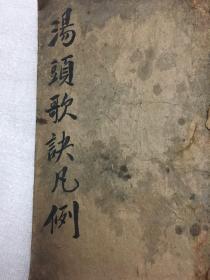 湯頭歌訣凡例